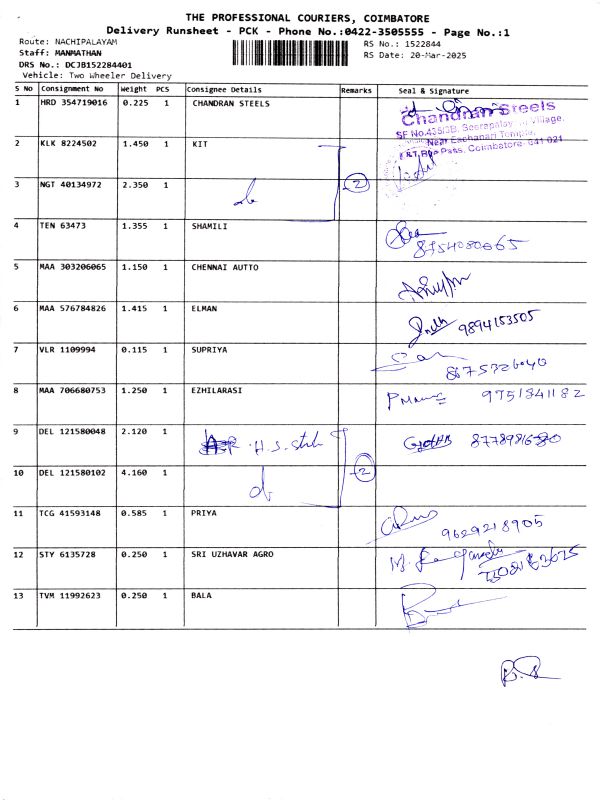 THE PROFESSIONAL COURIERS, COIMBATORE
Delivery Runsheet - PCK - Phone No.:0422-3505555 - Page No.:1
Route: NACHIPALAYAM RS No.: 1522844
Staff: MANMATHAN RS Date: 20-Mar-2025
DRS No.: DCJB152284401
Vehicle: Two Wheeler Delivery
S No Consignment No Weight PCS Consignee Details Remarks Seal & Signature
1 HRD 354719016 0.225 1 CHANDRAN STEELS
Chandran Steels
Village,
Near Eachanari Temple,
L&T Bye Pass, Coimbatore-641 021
2 KLK 8224502 1.450 1 KIT
3 NGT 40134972 2.350 1 2
4 TEN 63473 1.355 1 SHAMILI
8754080065
5 MAA 303206065 1.150 1 CHENNAI AUTTO
6 MAA 576784826 1.415 1 ELMAN 9894153505
7 VLR 1109994 0.115 1 SUPRIYA
8 MAA 706680753 1.250 1 EZHILARASI 9751841182
9 DEL 121580048 2.120 1 H.S.
10 DEL 121580102 4.160 1 2
11 TCG 41593148 0.585 1 PRIYA
9629218905
12 STY 6135728 0.250 1 SRI UZHAVAR AGRO
13 TVM 11992623 0.250 1 BALA